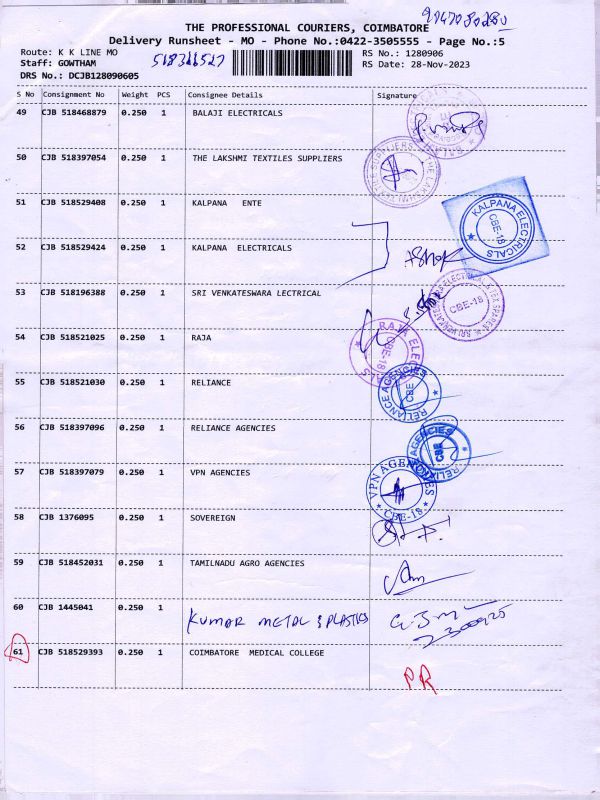 THE PROFESSIONAL COURIERS, COIMBATORE
Delivery Runsheet - MO - Phone No.:0422-3505555 - Page No.:5
Route: K K LINE MO
RS No.: 1280906
Staff: GOWTHAM
RS Date: 28-Nov-2023
DRS No.: DCJB128090605
S No Consignment No Weight PCS Consignee Details Signature
49 CJB 518468879 0.250 1 BALAJI ELECTRICALS
50 CJB 518397054 0.250 1 THE LAKSHMI TEXTILES SUPPLIERS
51 CJB 518529408 0.250 1 KALPANA ENTE
KALPANA ELECTRICALS
CBE-18
52 CJB 518529424 0.250 1 KALPANA ELECTRICALS
53 CJB 518196388 0.250 1 SRI VENKATESWARA LECTRICAL
CBE-18
54 CJB 518521025 0.250 1 RAJA
RAJA ELECTRICALS
CBE-18
55 CJB 518521030 0.250 1 RELIANCE
RELIANCE AGENCIES
CBE
56 CJB 518397096 0.250 1 RELIANCE AGENCIES
RELIANCE AGENCIES
CBE
57 CJB 518397079 0.250 1 VPN AGENCIES
VPN AGENCIES
CBE-18
58 CJB 1376095 0.250 1 SOVEREIGN
59 CJB 518452031 0.250 1 TAMILNADU AGRO AGENCIES
60 CJB 1445041 0.250 1 KUMAR METAL & PLASTICS
61 CJB 518529393 0.250 1 COIMBATORE MEDICAL COLLEGE
PR